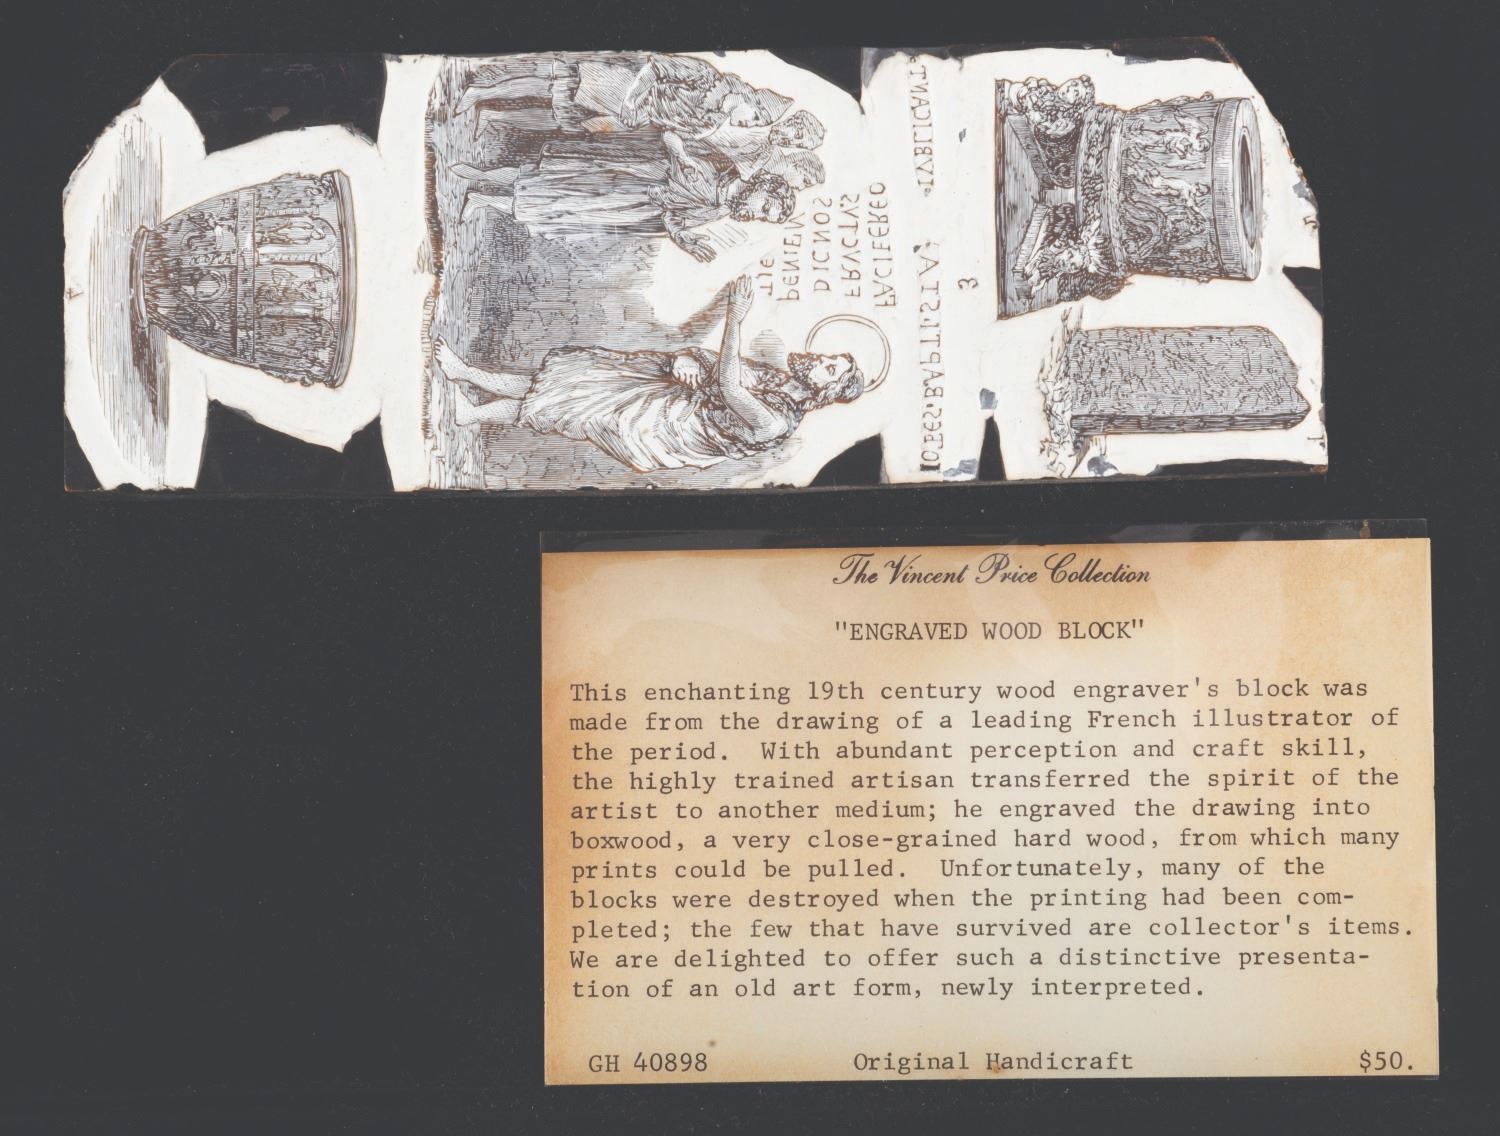 FACIEREO
FRVCTVS
DICNOS
PENITEN
TIE
BAPTISTA
3
The Vincent Price Collection
"ENGRAVED WOOD BLOCK"
This enchanting 19th century wood engraver's block was
made from the drawing of a leading French illustrator of
the period. With abundant perception and craft skill,
the highly trained artisan transferred the spirit of the
artist to another medium; he engraved the drawing into
boxwood, a very close-grained hard wood, from which many
prints could be pulled. Unfortunately, many of the
blocks were destroyed when the printing had been com-
pleted; the few that have survived are collector's items.
We are delighted to offer such a distinctive presenta-
tion of an old art form, newly interpreted.
GH 40898 Original Handicraft $50.